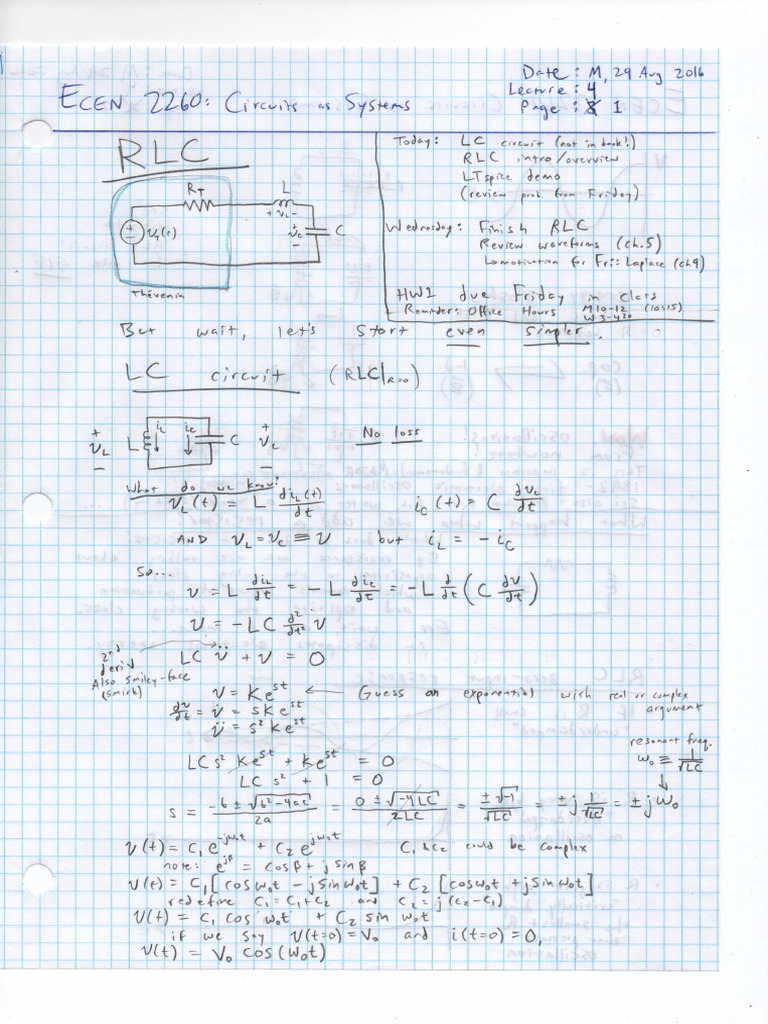 Date: M, 29 Aug 2016
Lecture: 4
Page: 1
ECEN 2260: Circuits as Systems
RLC
Today: LC circuit (not in book!)
RLC intro/overview
LTspice demo
(review prob. from Friday)
Wednesday: Finish RLC
Review waveforms (ch.5)
↳ motivation for Fri: Laplace (ch9)
HW1 due Friday in class
Reminder: Office Hours M 10-12 (10:15)
W 3-4:30
R_T L
+ v_L -
+ v_c - C
Thévenin
But wait, let's start even simpler.
LC circuit (RLC|_{R=0})
+ v_L - L i_L i_c C + v_c - No loss
What do we know?
v_L(t) = L di_L(t)/dt i_c(t) = C dv_c/dt
AND v_L = v_c ≡ v but i_L = -i_c
So...
v = L di_L/dt = -L di_c/dt = -L d/dt (C dv/dt)
v = -LC d²/dt² v
2nd deriv
Also smiley-face (smirk)
LC v̈ + v = 0
v = Ke^{st} ← Guess an exponential with real or complex argument
dv/dt = v̇ = sKe^{st}
v̈ = s²Ke^{st}
LCs² Ke^{st} + Ke^{st} = 0
LC s² + 1 = 0
resonant freq.
ω₀ ≡ 1/√LC
s = (-b ± √(b²-4ac))/2a = (0 ± √(-4LC))/2LC = ±√-1/√LC = ±j 1/√LC = ±jω₀
v(t) = C₁e^{-jω₀t} + C₂e^{jω₀t} C₁ & C₂ could be complex
note: e^{jβ} = cosβ + j sinβ
v(t) = C₁[cosω₀t - jsinω₀t] + C₂[cosω₀t + jsinω₀t]
redefine C₁ = C₁+C₂ and C₂ = j(C₂-C₁)
v(t) = C₁ cos ω₀t + C₂ sin ω₀t
if we say v(t=0) = V₀ and i(t=0) = 0,
v(t) = V₀ cos(ω₀t)